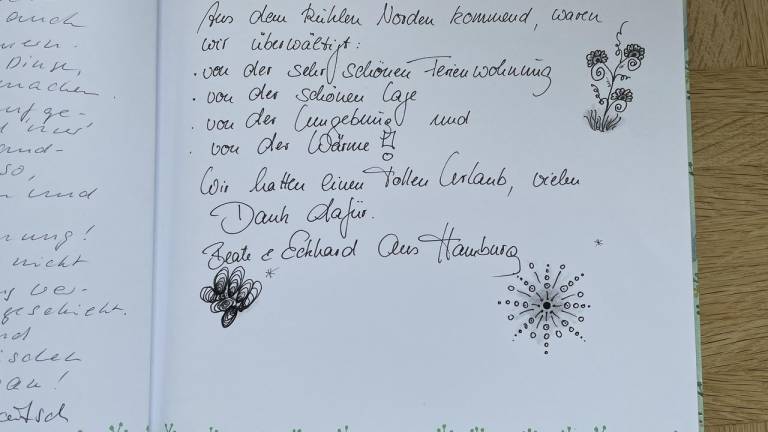 auch
Dinse,
machen
auf ge-
und-
so,
und
nung!
nicht
ver-
geschieht.
nd
ischen
an!
Aus dem kühlen Norden kommend, waren
wir überwältigt:
. von der sehr schönen Ferienwohnung
. von der schönen Lage
. von der Umgebung und
. von der Wärme!
Wir hatten einen tollen Urlaub, vielen
Dank dafür.
Beate & Eckhard aus Hamburg